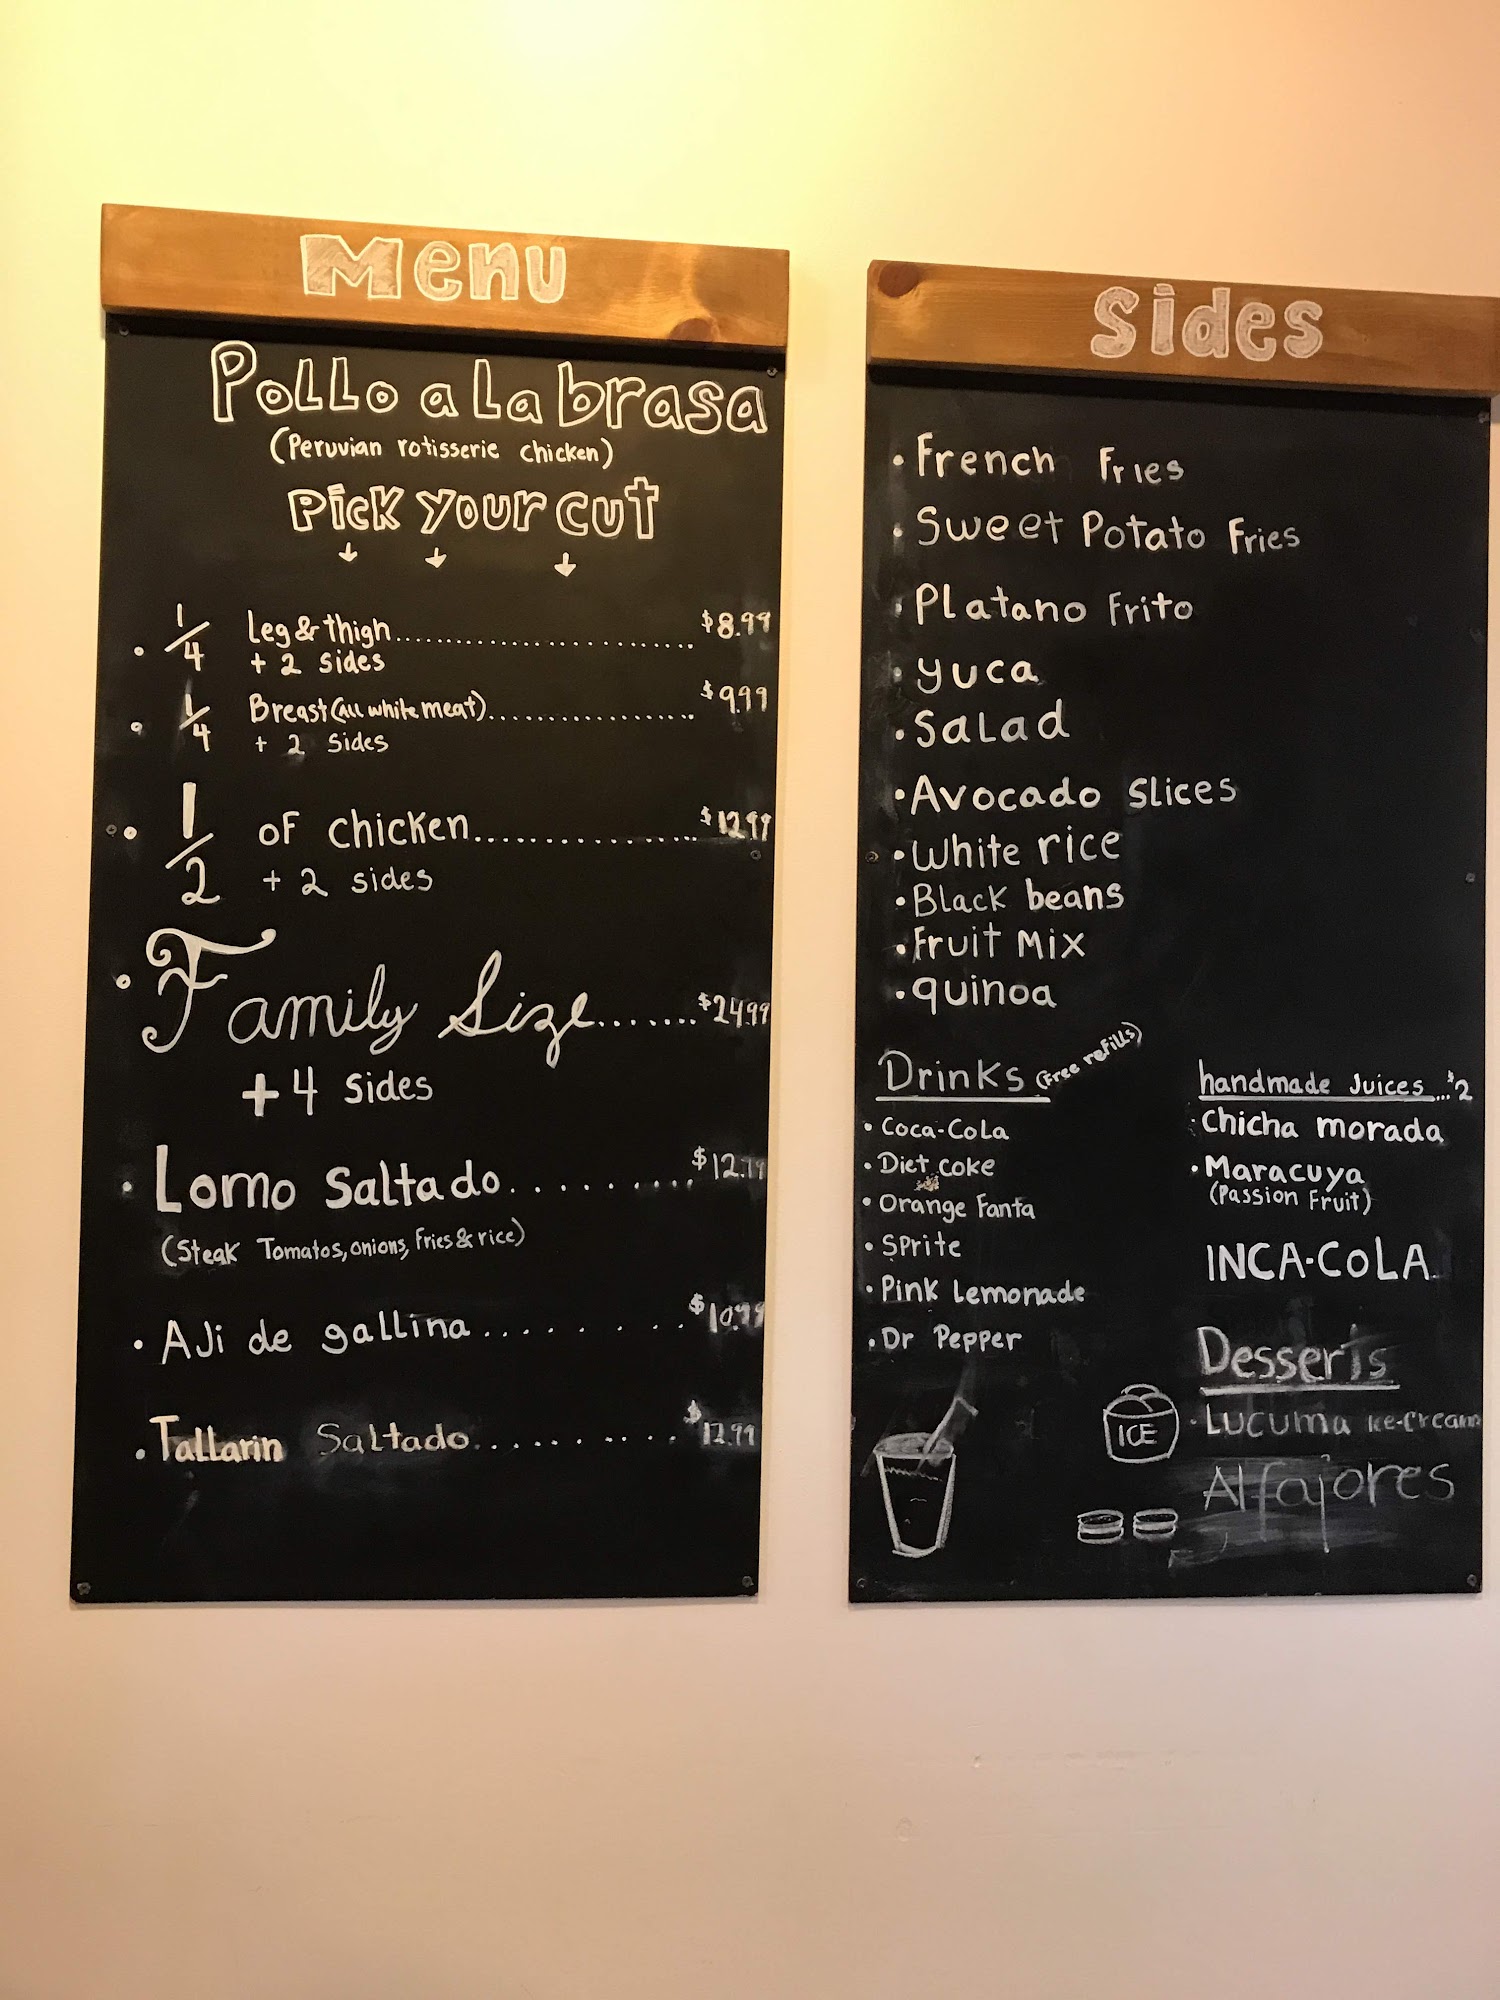 Menu
Pollo a la brasa
(Peruvian rotisserie chicken)
Pick your cut
• 1/4 Leg & thigh.............................. $8.99
+ 2 sides
• 1/4 Breast (All white meat)................... $9.99
+ 2 sides
• 1/2 of chicken................... $12.99
+ 2 sides
• Family Size....... $24.99
+ 4 sides
• Lomo Saltado.......... 
(Steak Tomatos, onions, fries & rice)
• Aji de gallina......... $10.99
• Tallarin Saltado.......... $12.99
Sides
• French Fries
• Sweet Potato Fries
• Platano Frito
• yuca
• Salad
• Avocado slices
• White rice
• Black beans
• Fruit Mix
• quinoa
Drinks (Free refills)
• Coca-Cola
• Diet coke
• Orange Fanta
• Sprite
• Pink Lemonade
• Dr Pepper
handmade Juices...$2
• Chicha morada
• Maracuya
(Passion Fruit)
INCA-COLA
Desserts
• Lucuma ice-cream
Alfajores
ICE